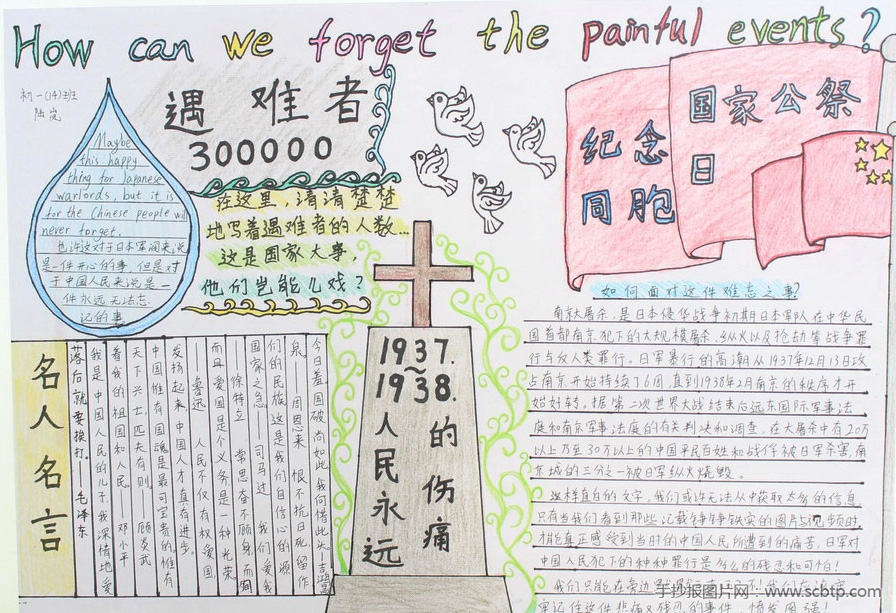 How can we forget the painful events?
初一(14)班
陆岚
遇难者
300000
Maybe
this happy
thing for Japanese
warlords, but it is
for the Chinese people will
never forget.
也许这对于日本军阀来说
是一件开心的事,但是对
于中国人民来说是一
件永远无法忘
记的事
在这里,清清楚楚
地写着遇难者的人数...
这是国家大事,
他们岂能儿戏?
国家公祭
日
纪念
同胞
1937.
~
1938.
人民永远
的伤痛
名人名言
今日羞,国破尚如此,我何惜此头。吉鸿昌
泉。——周恩来 恨不抗日死,留作
们的民族,这是我们自信心的源
国家之急。——司马迁 我们爱我
徐特立 常思奋不顾身,而殉
而且爱国是个义务,是一种光荣。
鲁迅 人民不仅有权爱国,
发扬起来,中国人才真有进步。
中国惟有国魂是最可宝贵的,惟有
天下兴亡,匹夫有则。 顾炎武
着我的祖国和人民。——邓小平
我是中国人民的儿子,我深情地爱
落后就要挨打。——毛泽东
如何面对这件难忘之事?
南京大屠杀,是日本侵华战争初期日本军队在中华民
国首都南京犯下的大规模屠杀、纵火以及抢劫等战争罪
行与反人类罪行。日军暴行的高潮从1937年12月13日攻
占南京开始持续了6周,直到1938年2月南京的秩序才开
始好转。据第二次世界大战结束后远东国际军事法
庭和南京军事法庭的有关判决和调查,在大屠杀中有20万
以上乃至30万以上的中国平民百姓和战俘被日军杀害,南
京城的三分之一被日军纵火烧毁。
这样直白的文字,我们或许无法从中获取太多的信息,
只有当我们看到那些记载铮铮铁实的图片与视频时
才能真正感受到当时的中国人民所遭到的痛苦,日军对
中国人民犯下的种种罪行是多么的残忍和可怕!
我们只能在旁边
牢记住这件悲痛又残忍的事件,愤发图强!
手抄报图片网 · www.scbtp.com